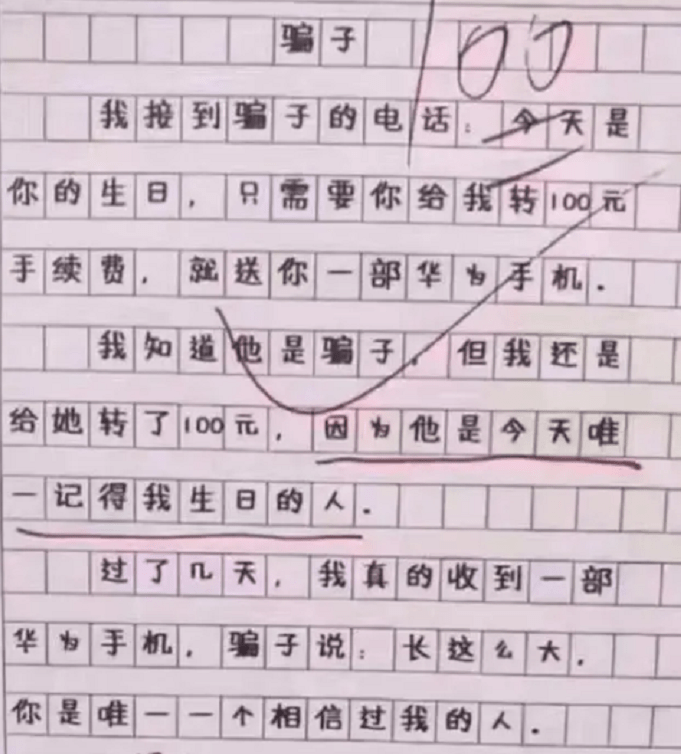 骗子 100
我接到骗子的电话：今天是
你的生日，只需要你给我转100元
手续费，就送你一部华为手机．
我知道他是骗子，但我还是
给她转了100元，因为他是今天唯
一记得我生日的人．
过了几天，我真的收到一部
华为手机，骗子说：长这么大，
你是唯一一个相信过我的人．